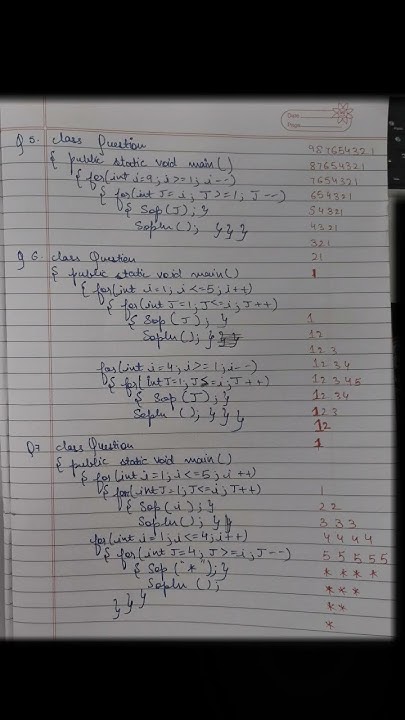 Date
Page
Q 5. class Question
{ public static void main()
{ for(int i=9; i>=1; i--)
{ for(int J=i; J>=1; J--)
{ Sop(J); }
Sopln(); } } }
987654321
87654321
7654321
654321
54321
4321
321
21
1
Q 6. class Question
{ public static void main()
{ for(int i=1; i<=5; i++)
{ for(int J=1; J<=i; J++)
{ Sop(J); }
Sopln(); }
for(int i=4; i>=1; i--)
{ for(int J=1; J<=i; J++)
{ Sop(J); }
Sopln(); } } }
1
12
123
1234
12345
1234
123
12
1
Q7 class Question
{ public static void main()
{ for(int i=1; i<=5; i++)
{ for(int J=1; J<=i; J++)
{ Sop(i); }
Sopln(); }
for(int i=1; i<=4; i++)
{ for(int J=4; J>=i; J--)
{ Sop("*"); }
Sopln();
} } }
1
22
333
4444
55555
****
***
**
*